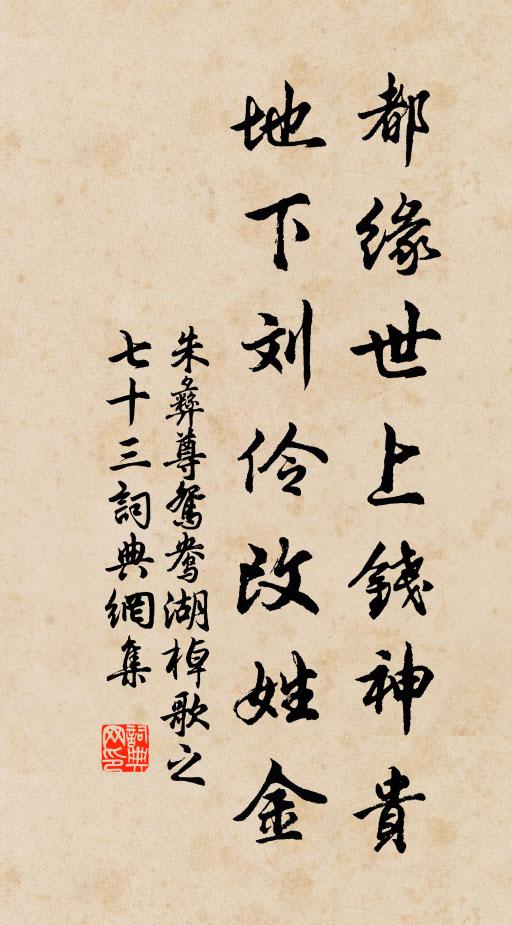 都缘世上錢神貴
地下刘伶改姓金
朱彝尊鸳鸯湖棹歌之
七十三詞典網集
詞典网印